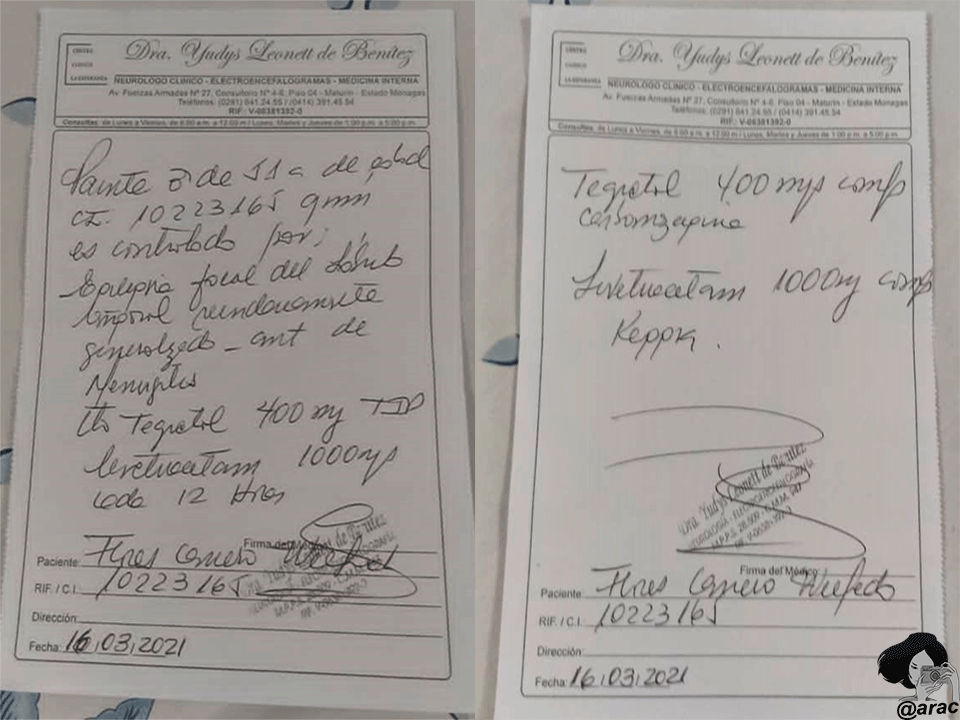 CENTRO
CLINICO
LA ESPERANZA
Dra. Yudys Leonett de Benítez
NEUROLOGO CLINICO - ELECTROENCEFALOGRAMAS - MEDICINA INTERNA
Av. Fuerzas Armadas Nº 27, Consultorio Nº 4-6, Piso 04 - Maturin - Estado Monagas
Teléfonos: (0291) 641.24.55 / (0414) 391.45.54
RIF.: V-08381392-0
Consultas: de Lunes a Viernes, de 8:00 a.m. a 12:00 m / Lunes, Martes y Jueves de 1:00 p.m. a 5:00 p.m.
de 51 a de edad
CI. 10223165 qmn
es controlado por:
Epilepsia focal del lóbulo
temporal secundariamente
generalizada - ant de
Meningitis
Tto Tegretol 400 mg TID
levetiracetam 1000 mgs
cada 12 Hras
Firma del Médico:
Paciente: Flores
RIF. / C.I.: 10223165
Dirección:
Fecha: 16/03/2021
CENTRO
CLINICO
LA ESPERANZA
Dra. Yudys Leonett de Benítez
NEUROLOGO CLINICO - ELECTROENCEFALOGRAMAS - MEDICINA INTERNA
Av. Fuerzas Armadas Nº 27, Consultorio Nº 4-6, Piso 04 - Maturin - Estado Monagas
Teléfonos: (0291) 641.24.55 / (0414) 391.45.54
RIF.: V-08381392-0
Consultas: de Lunes a Viernes, de 8:00 a.m. a 12:00 m / Lunes, Martes y Jueves de 1:00 p.m. a 5:00 p.m.
Tegretol 400 mgs comp
carbamazepina
Levetiracetam 1000 mg comp
Keppra.
Dra. Yudys Leonett de Benítez
Firma del Médico:
Paciente: Flores
RIF. / C.I.: 10223165
Dirección:
Fecha: 16/03/2021
@arac